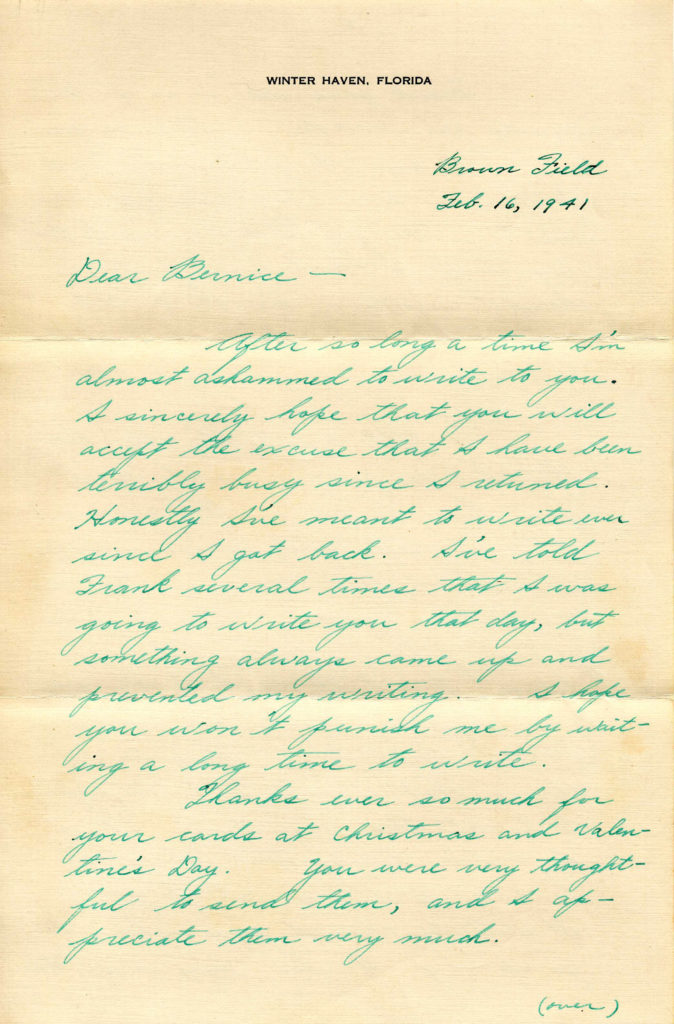 WINTER HAVEN, FLORIDA
Brown Field
Feb. 16, 1941
Dear Bernice —
After so long a time I'm
almost ashammed to write to you.
I sincerely hope that you will
accept the excuse that I have been
terribly busy since I retuned.
Honestly I've meant to write ever
since I got back. I've told
Frank several times that I was
going to write you that day, but
something always came up and
prevented my writing. I hope
you won't punish me by wait-
ing a long time to write.
Thanks ever so much for
your cards at Christmas and Valen-
tine's Day. You were very thought-
ful to send them, and I ap-
preciate them very much.
(over)